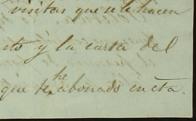 visitas que le hacen
to y la carta del
que he abonado en cta.